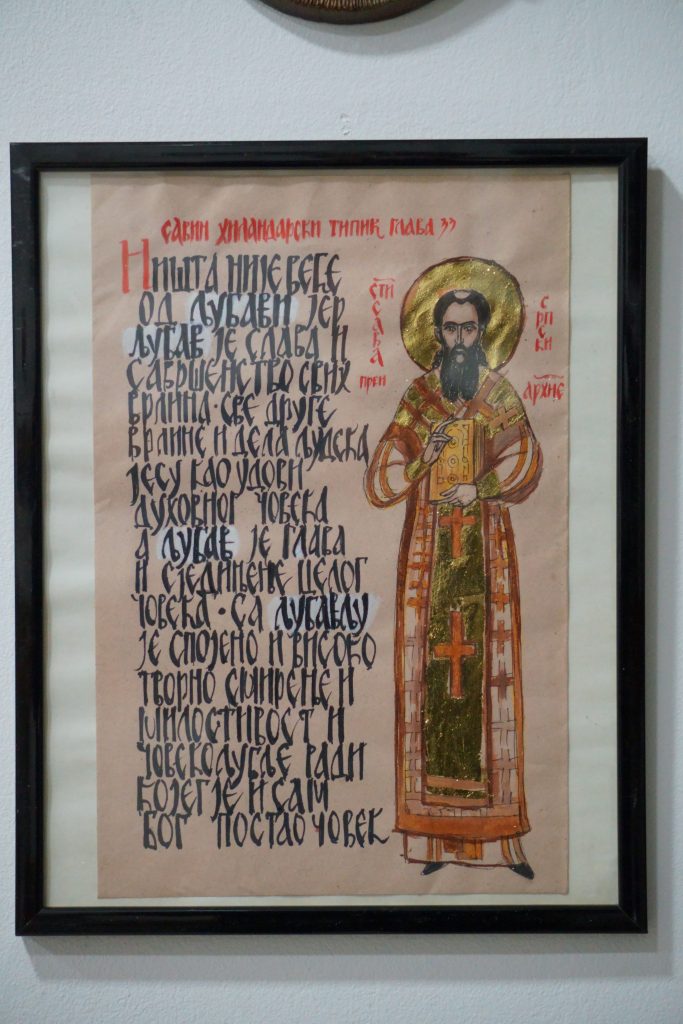 САВИН ХИЛАНДАРСКИ ТИПИК ГЛАВА 33
НИШТА НИЈЕ ВЕЋЕ
ОД ЉУБАВИ ЈЕР
ЉУБАВ ЈЕ СЛАВА И
САВРШЕНСТВО СВИХ
ВРЛИНА · СВЕ ДРУГЕ
ВРЛИНЕ И ДЕЛА ЉУДСКА
ЈЕСУ КАО УДОВИ
ДУХОВНОГ ЧОВЕКА
А ЉУБАВ ЈЕ ГЛАВА
И СЈЕДИЊЕЊЕ ЦЕЛОГ
ЧОВЕКА · СА ЉУБАВЉУ
ЈЕ СПОЈЕНО И ВИСОКО
ТВОРНО СМИРЕЊЕ И
МИЛОСТИВОСТ И
ЧОВЕКОЉУБЉЕ РАДИ
КОЈЕГ ЈЕ И САМ
БОГ ПОСТАО ЧОВЕК
СТИ
САВА
ПРВИ
СРПСКИ
АРХИЕ